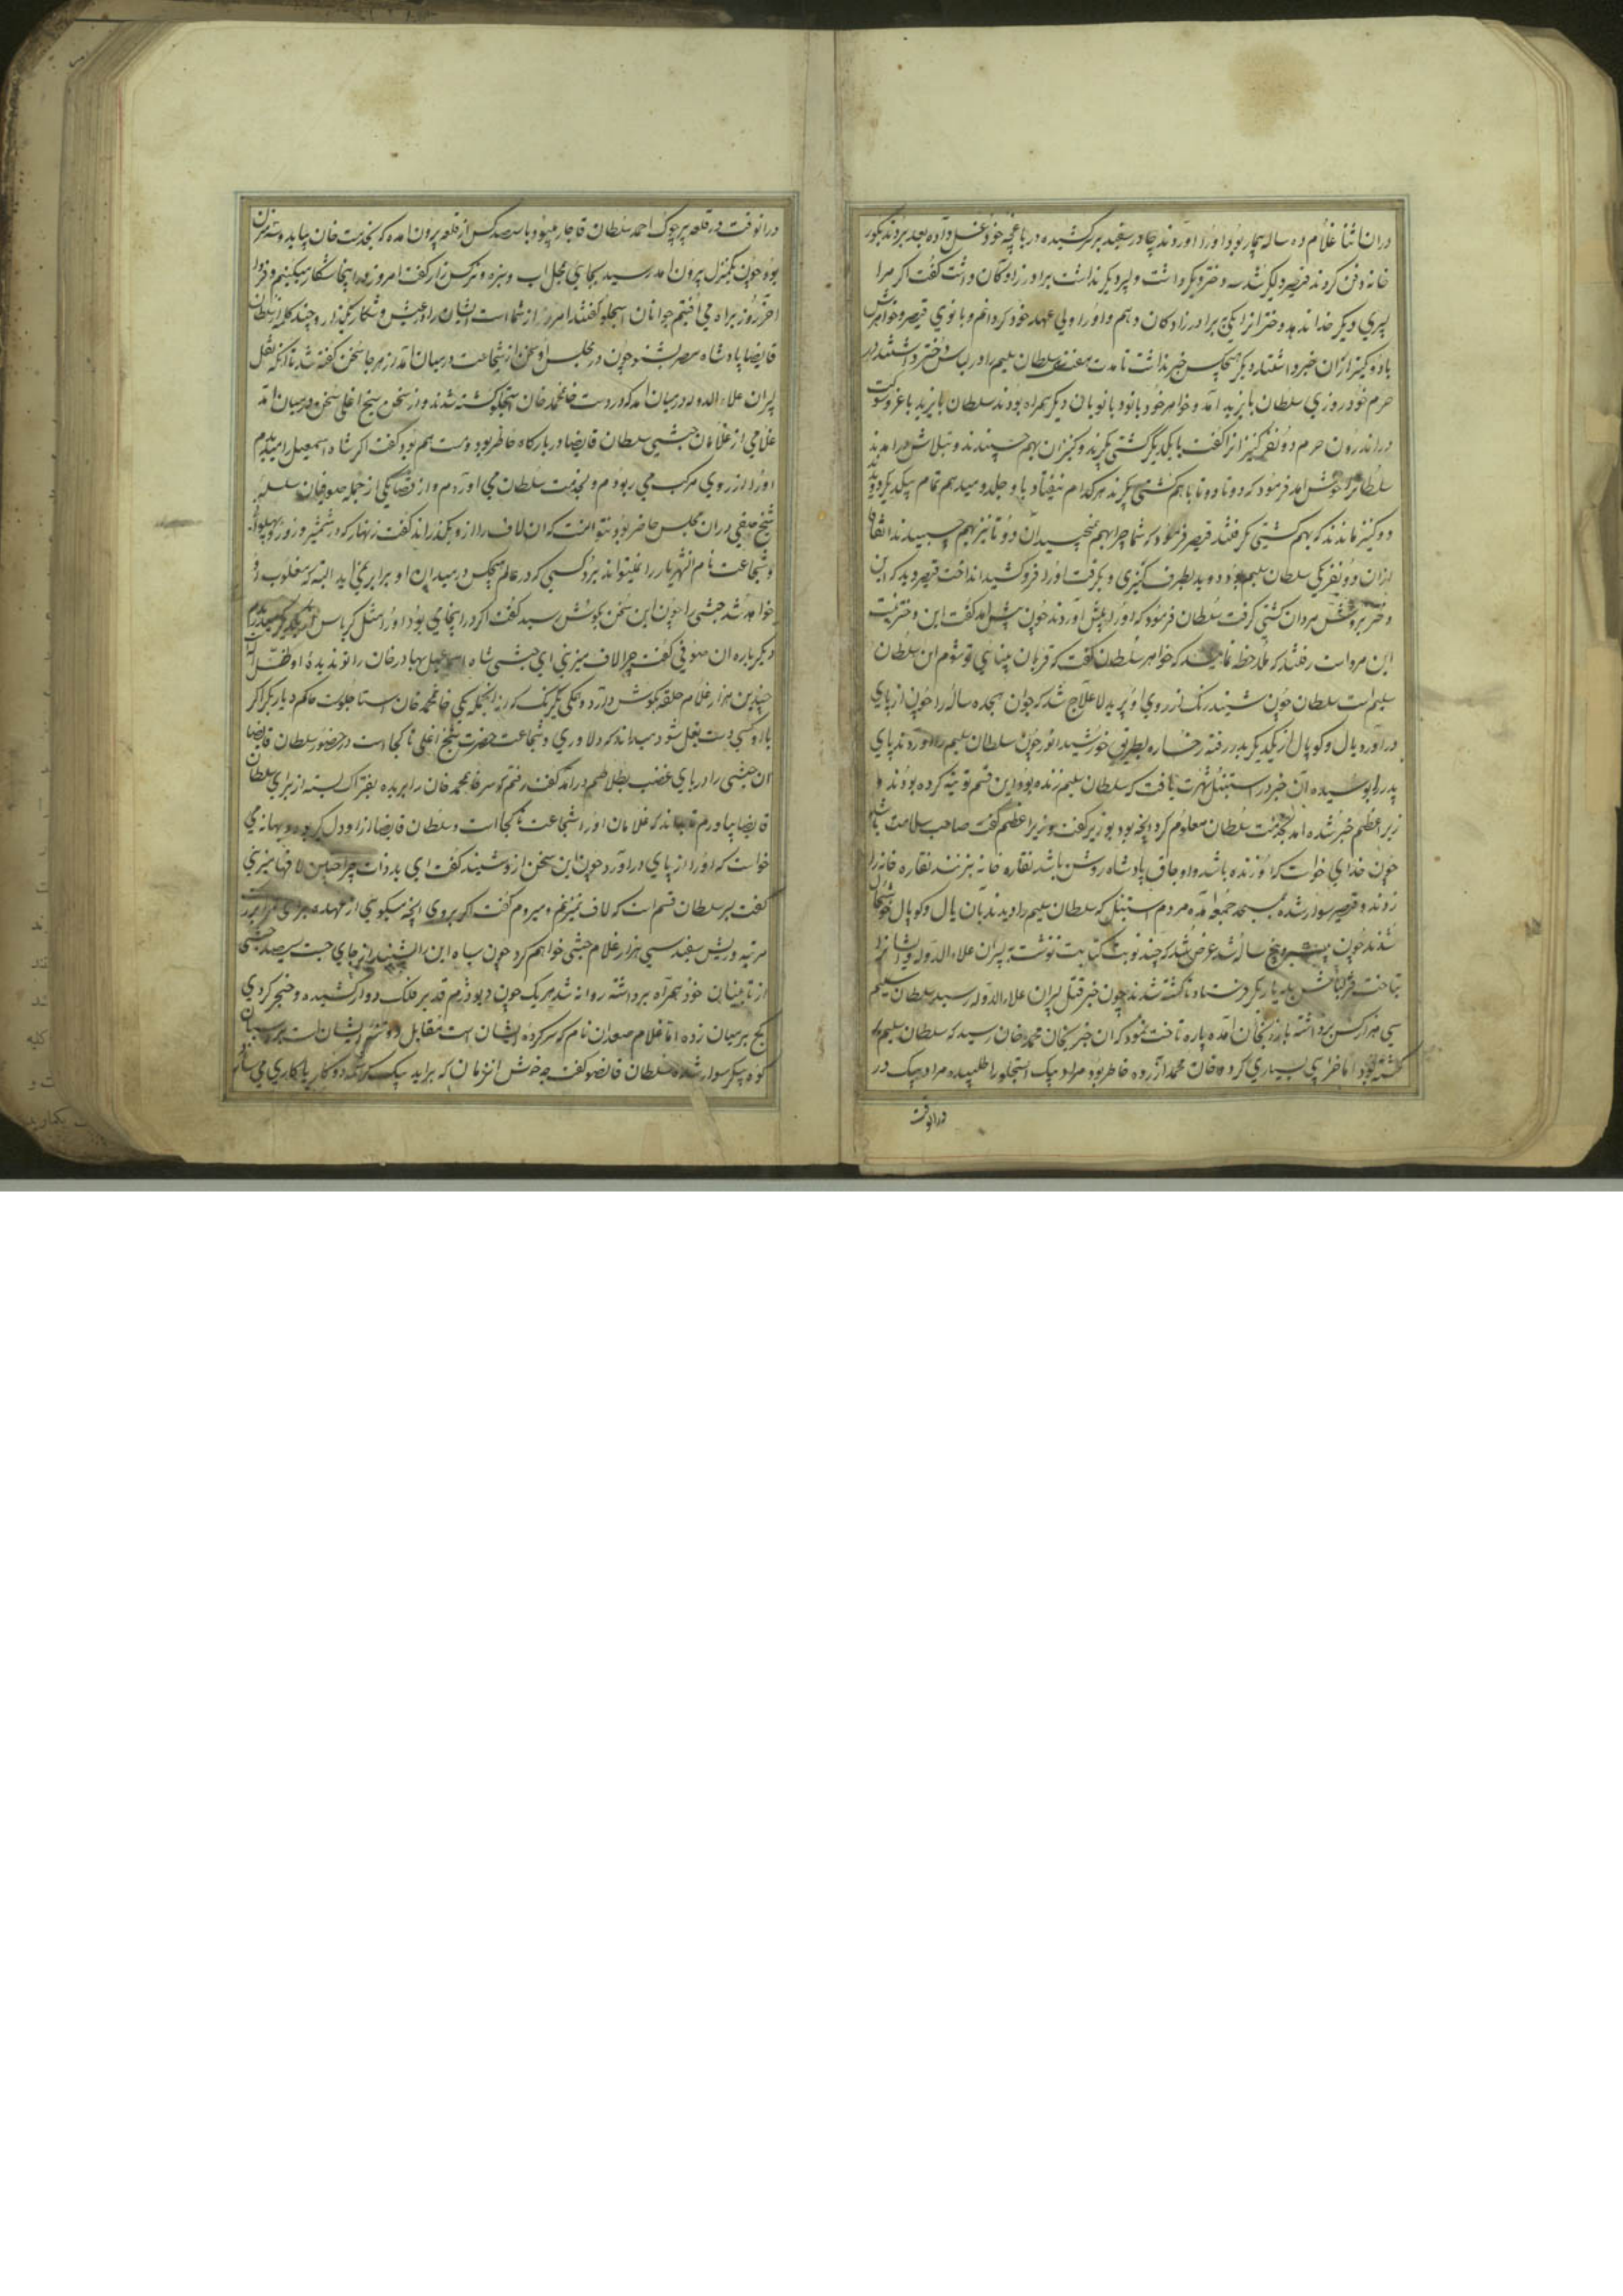 دران اثنا غلام ده ساله بیمار بود اورا اوردند چادر سفید بر سر کشیده در باغچه خود غسل داده بعد بردند بکور
خانه دفن کردند قیصر دلیکر شد و دختر دیکر داشت و پسر دیکر نداشت برادر زادکان داشت کفت اکر مرا
پسری دیکر خدا ندهد دختر انرا بیکی برادر زادکان دهم و اورا ولی عهد خود کردانم و بانوی قیصر و خواهرش
با دو کنیز ازان خبر داشتند دیکر هیچکس خبر نداشت تا مدت هفت سال سلطان سلیم را در لباس دختر داشتند در
حرم خود روزی سلطان بایزید آمد و خواهر خود بانو و بانویان دیکر همراه بودند سلطان بایزید با غر و شوکت
در اندرون حرم دو نفر کنیز انرا کفت با یکدیکر کشتی بکیرند و کنیزان بهم چسپیدند و بتلاش درامدند
سلطانرا خوش امد فرمود که دوتا دوتا باهم کشتی بکیرند هرکدام نیفتاد باو جلدو میدهم تمام بیکدیکر
دو کنیز ماندند که بهم کشتی نکرفتند قیصر فرمود که شما چرا بهم نچسپیدید ان دو تا نیز بهم چسپیدند اتفاقا
ازان دو نفر یکی سلطان سلیم بود دوید بطرف کنیزی و بکرفت اورا فرو کشید انداخت قیصر دید که این
دختر بروش مردان کشتی کرفت سلطان فرمود که اورا پیش آوردند چون پیش امد کفت این دختر نیست
این مرد است رفتند که ملاحظه نمایند که خواهر سلطان کفت که قربان بینائی تو شوم این سلطان
سلیم است سلطان چون شنید رنک از روی او پرید لاعلاج شد که جوان هجده ساله را چون از پای
درآورد یال و کوپال از یکدیکر بدر رفته رخساره بطریق خورشید انور چون سلطان سلیم را اوردند پای
پدر را بوسیده آن خبر در استنبول شهرت یافت که سلطان سلیم زنده بود و این قسم تربیت کرده بودند و
زیر اعظم خبر شده امد بخدمت سلطان معلوم کرد انچه بود بوزیر کفت وزیر اعظم کفت صاحب سلامت باشد
چون خدای خواست که او زنده باشد و اوجاق پادشاه روشن باشد نقاره خانه بزنند نقاره خانه را
زدند و قیصر سوار شده بمسجد جمعه آمده مردم استنبول که سلطان سلیم را دیدند بان یال و کوپال خوشحال
شدند چون بیست و پنج ساله شد عرض شد که چند نوبت کتابت نوشت به پسران علاء الدوله و ایشانرا
بتاخت قزلباش بدیار بکر فرستاد تا کشته شدند چون خبر قتل پسران علاء الدوله رسید سلطان سلیم
سی هزار کس برداشته بارزنجان آمده پاره تاخت نمود که ان خبر بخان محمد خان رسید که سلطان سلیم بر
کشته بود اما خرابی بسیاری کرده خان محمد ازرده خاطر بود مراد بیک استجلو را طلبیده مراد بیک در
درانوقت
درانوقت در قلعه پرچوک احمد سلطان قاجار میبود با سیصد کس از قلعه بیرون امده که بخدمت خان بیاید
بود چون یکمنزل بیرون امد رسید بجای محل اب و سبزه و نرکس زار کفت امروز در اینجا شکار میکنیم و فردا
آخر روز براه می افتیم جوانان استجلو کفتند امروز از شماست ایشان را در عیش و شکار بکذار و چند کلمه از سلطان
قایضا پادشاه مصر بشنو چون در مجلس او سخن از شجاعت درمیان آمد از هر جا سخن کفته شد تا انکه نقل
پسران علاء الدوله درمیان امد که در دست خان محمد خان استجلو کشته شدند و از سخن شیخ اغلی سخن درمیان آمد
غلامی از غلامان حبشی سلطان قایضا در بارکاه حاضر بود و مست هم بود کفت اکر شاه اسمعیل را میدیدم
اورا از روی مرکب می ربودم و بخدمت سلطان می آوردم و از قضا یکی از جمله صوفیان سلسله
شیخ صفی دران مجلس حاضر بود و نتوانست که ان لاف را از و بکذراند کفت زنهار که در شمشیر و زور و پهلوانی
و شجاعت نام انشهریار را نمیتواند برد کسی که در عالم هیچکس در میدان او برابر نمی اید البته که مغلوب او
خواهد شد حبشی را چون این سخن بکوش رسید کفت اکر در اینجا می بود اورا مثل کرپاس
دیکر باره ان صوفی کفت چرا لاف میزنی ای حبشی شاه اسمعیل بهادر خان را تو ندیده او ظل الله
چندین هزار غلام حلقه بکوش دارد و همکی یکرنک که از انجمله یکی خان محمد خان استاجلوست حاکم دیار بکر اکر
با او کسی دست بغل شود میداند که دلاوری و شجاعت حضرت شیخ اغلی تا کجا است در حضور سلطان قایضا
ان حبشی را دریای غضب بتلاطم درآمد کفت رفتم که سر خان محمد خان را بریده بفتراک بسته از برای سلطان
قایضا بیاورم تا بداند که غلامان اورا شجاعت تا کجا است و سلطان قایضا ازاو دل کیر بود و بهانه می
خواست که اورا از پای درآورد چون این سخن ازو شنید کفت ای بد ذات چرا چنین لافها میزنی
کفت بسر سلطان قسم است که لاف نمیزنم و میروم کفت اکر بروی انچه میکویی از عهده برایی ترا
مرتبه و ریش سفید سی هزار غلام حبشی خواهم کرد چون سیاه این را شنید از جای جست سیصد حبشی
از تابینان خود همراه برداشته روانه شد هریک چون دیو دژم قد بر فلک دوار کشیده و خنجر کردی
کج بر میان زده اما غلام صعدان نام که سر کرده ایشان است مقابل دو تن ایشان است بر اسپان
کوه پیکر سوار شده سلطان قانصو کفت چه خوش انزمان که براید بیک کرشمه دو کار